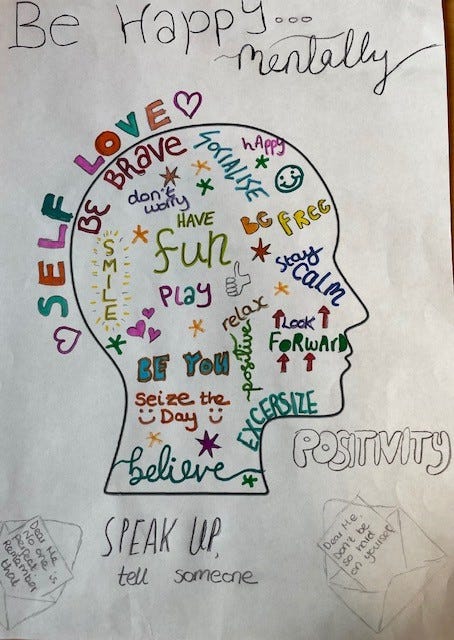 Be Happy...
mentally
SELF LOVE
BE BRAVE
SOCIALISE
happy
don't
worry
HAVE
fun
BE FREE
SMILE
Stay
CALM
PLAY
relax
Look
FORWARD
positive
BE YOU
Seize the
Day
EXCERSIZE
believe
POSITIVITY
SPEAK UP,
tell someone
Dear Me,
No one is
perfect
Remember
that
Dear Me,
Don't be
so hard
on yourself